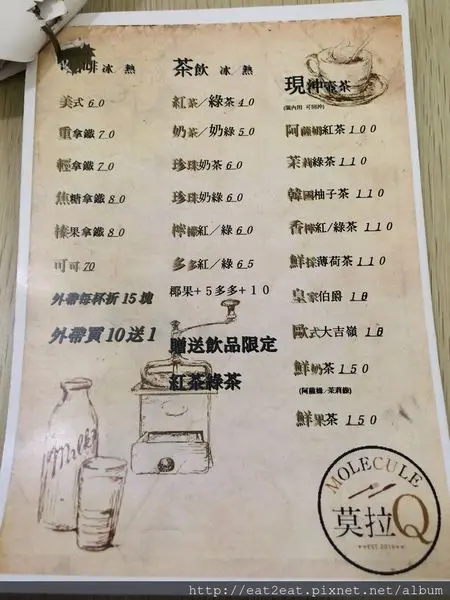 咖啡 冰/熱
美式 60
重拿鐵 70
輕拿鐵 70
焦糖拿鐵 80
榛果拿鐵 80
可可 70
外帶每杯折 15 塊
外帶買 10 送 1
茶飲 冰/熱
紅茶/綠茶 40
奶茶/奶綠 50
珍珠奶茶 60
珍珠奶綠 60
檸檬紅/綠 60
多多紅/綠 65
椰果+5多多+10
贈送飲品限定
紅茶綠茶
現沖壺茶
(限內用 可回沖)
阿薩姆紅茶 100
茉莉綠茶 110
韓國柚子茶 110
香檸紅/綠茶 110
鮮採薄荷茶 110
皇家伯爵
歐式大吉嶺
鮮奶茶 150
(阿薩姆/茉莉綠)
鮮果茶 150
Milk
MOLECULE
莫拉Q
http://eat2eat.pixnet.net/album